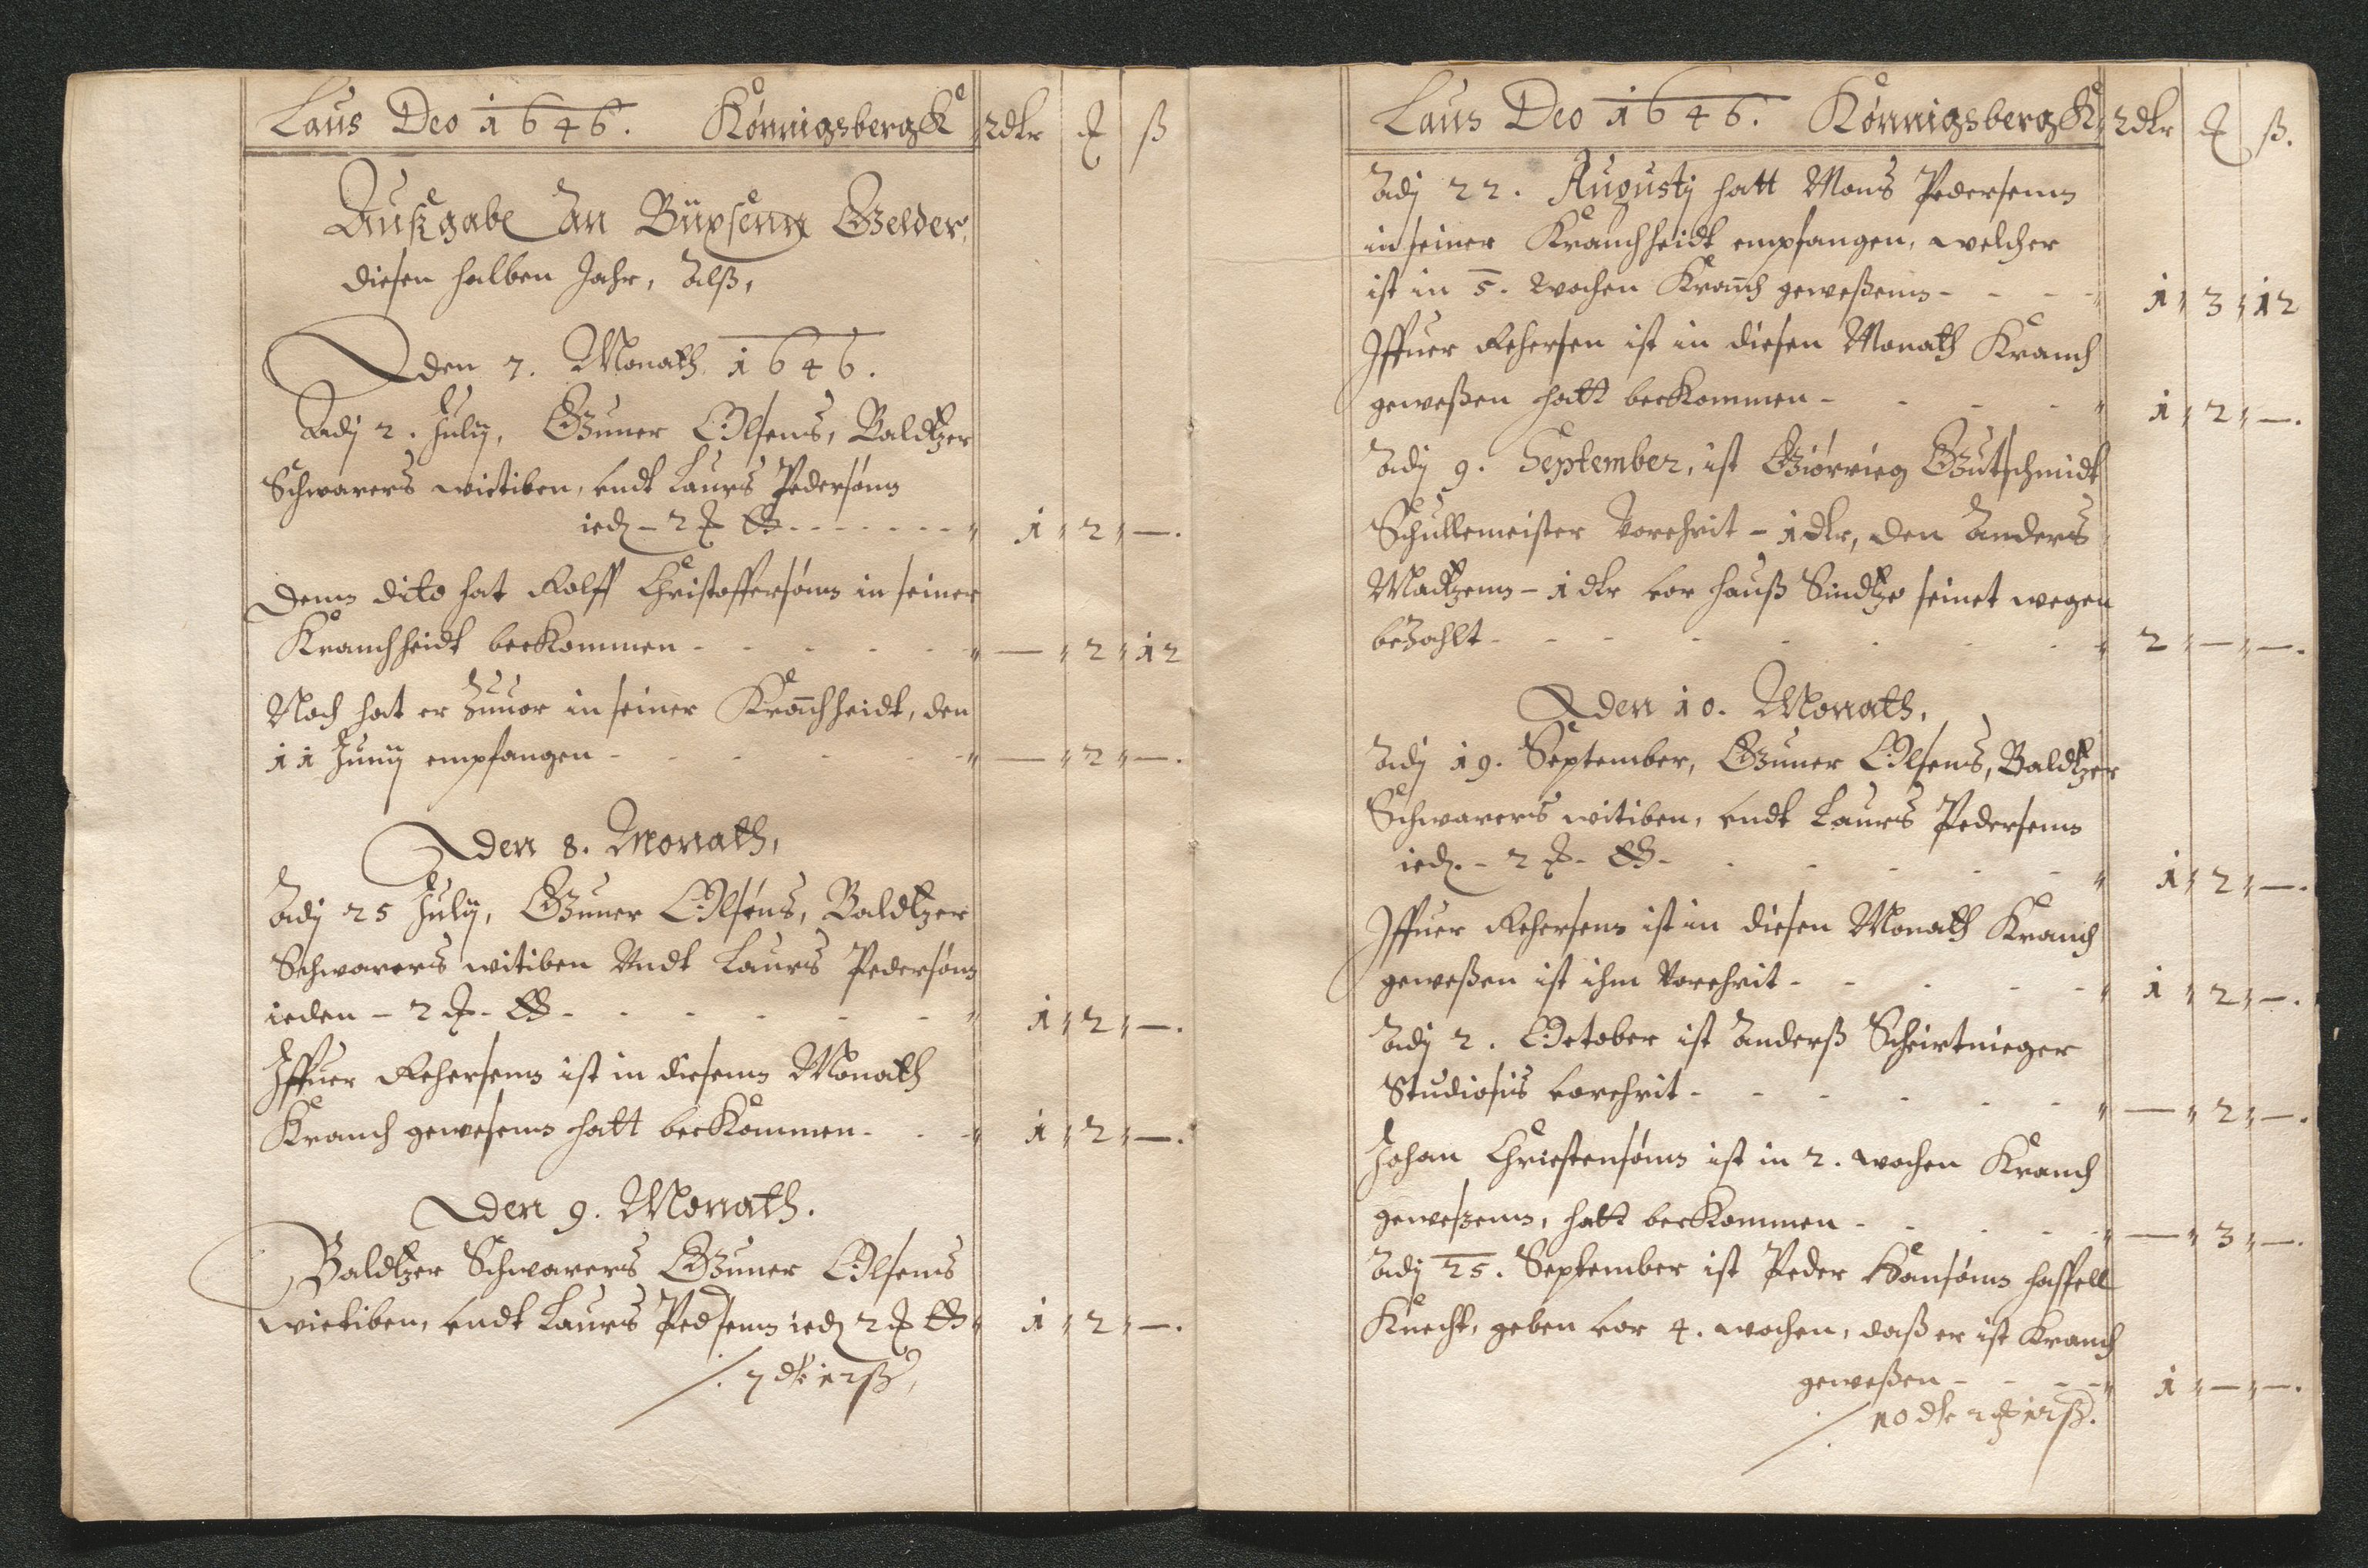 Laus Deo 1646. Könnigsbergk Rdlr ꝶ ß
Außgabe An Büxsenn Gelder,
diesen halben Jahr, Alß,
Den 7. Monath 1646.
Adj 2. Julij, Guner Olsens, Baldtzer
Schwarers wietiben, undt Laurs Pedersönn
ied. - 2 ꝶ - " 1 " 2 " —.
Denn dito hat Rolff Christoffersönn in seiner
Kranchheidt beekommen - - - " — " 2 " 12
Noch hat er Zuuor in seiner Kranchheidt, den
11 Junij empfangen - - - " — " 2 " —.
Den 8. Monath,
Adj 25 Julij, Guner Olsöns, Baldtzer
Schwarers witiben Undt Laurs Pedersönn
ieden - 2 ꝶ - - - " 1 " 2 " —.
Iffuer Rehersenn ist in diesenn Monath
Kranch gewesenn hatt beekommen - - " 1 " 2 " —.
Den 9. Monath.
Baldtzer Schwarers Guner Olsens
wietiben, undt Laurs Pedsenn ied 2 ꝶ " 1 " 2 " —.
/. 7 dlr 12 ß,
Laus Deo 1646. Könnigsbergk Rdlr ꝶ ß.
Adj 22. Augustj hatt Mons Pedersenn
in seiner Kranchheidt empfangen, welcher
ist in 5. wochen Kranch geweßenn - - - " 1 " 3 " 12
Iffuer Rehersen ist in diesen Monath Kranch
geweßen hatt beekommen - - - " 1 " 2 " —.
Adj 9. September, ist Giörrieg Gutschmidt
Schullemeister Vorehrit - 1 dlr, den Anders
Madtzenn - 1 dlr vor hauß Sindtze seinet wegen
beZahlt - - - " 2 " — " —.
Den 10. Monath,
Adj 19. September, Guner Olsens, Baldtzer
Schwarers witiben, undt Laurs Pedersenn
ied. - 2 ꝶ - - - " 1 " 2 " —.
Iffuer Rehersenn ist in diesen Monath Kranch
geweßen ist ihm Vorehrit - - - " 1 " 2 " —.
Adj 2. October ist Anderß Scheirtnieger
Studiosus vorehrit - - - " — " 2 " —.
Johan Christensönn ist in 2. wochen Kranch
geweßenn, hatt beekommen - - - " — " 3 " —.
Adj 25. September ist Peder Hansönn haffell
Knecht, geben vor 4. wochen, daß er ist Kranch
geweßen - - - " 1 " — " —.
/. 10 dlr 2 ꝶ 12 ß.